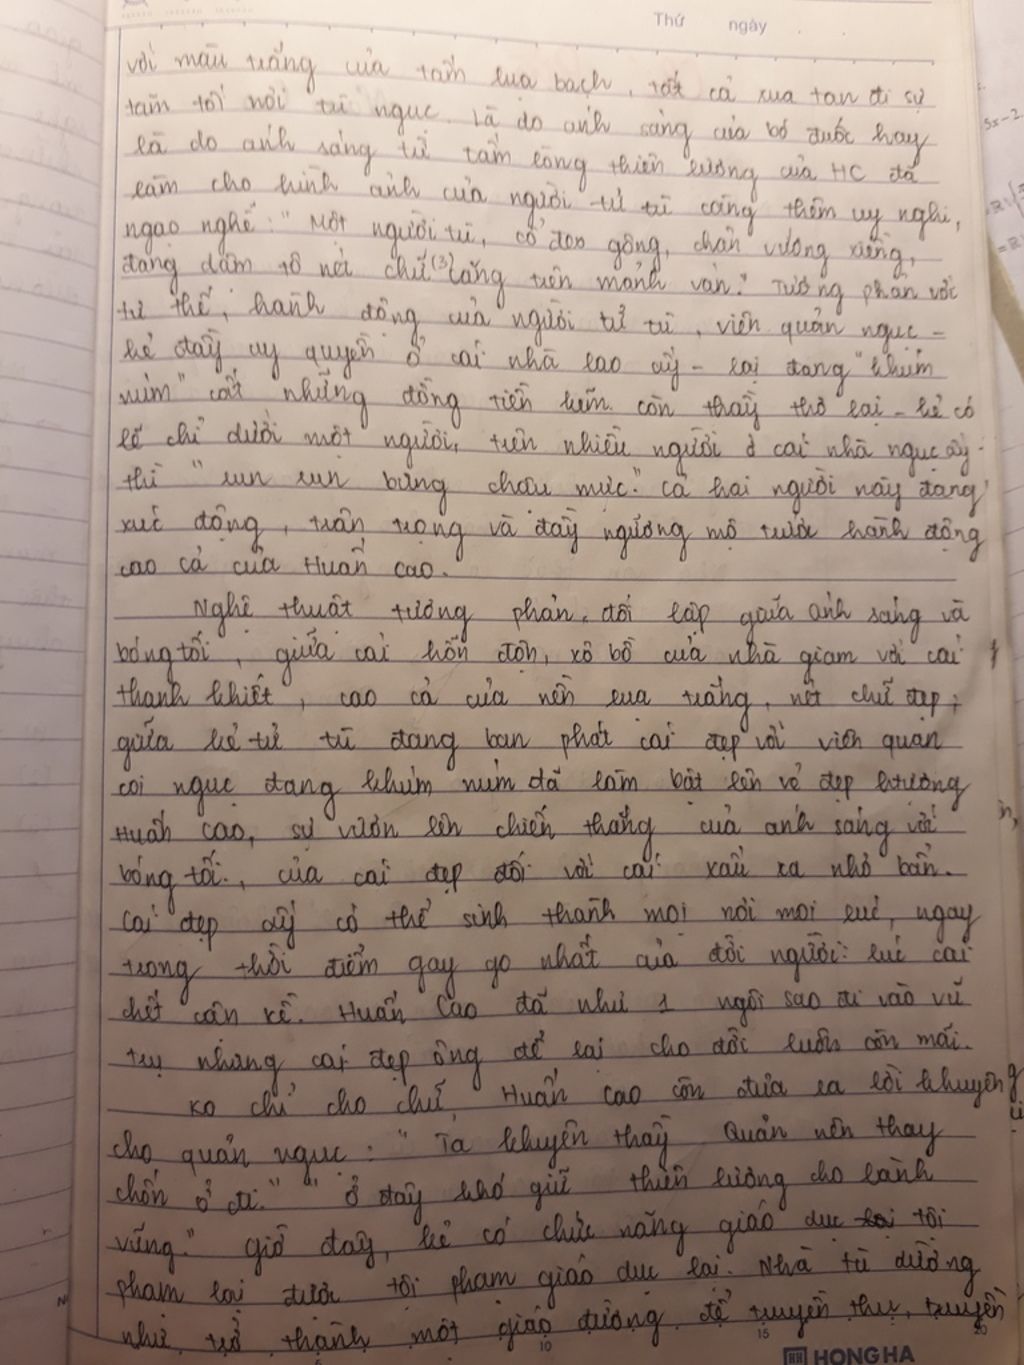 Thứ ngày
với màu trắng của tấm lụa bạch, tất cả xua tan đi sự
tăm tối nơi tù ngục. Là do ánh sáng của bó đuốc hay
là do ánh sáng từ tấm lòng thiên lương của HC đã
làm cho hình ảnh của người tử tù càng thêm uy nghi,
ngạo nghễ: "Một người tù, cổ đeo gông, chân vướng xiềng,
đang dậm tô nét chữ (3) trên mảnh ván." Tương phản với
tư thế, hành động của người tử tù, viên quản ngục -
kẻ đầy uy quyền ở cái nhà lao ấy - lại đang "khúm
núm" cất những đồng tiền kẽm còn thầy thơ lại - kẻ có
lẽ chỉ dưới một người, trên nhiều người ở cái nhà ngục ấy -
thì "run run bưng chậu mực." Cả hai người này đang
xúc động, trân trọng và đầy ngưỡng mộ trước hành động
cao cả của Huấn Cao.
Nghệ thuật tương phản, đối lập giữa ánh sáng và
bóng tối, giữa cái hỗn độn, xô bồ của nhà giam với cái
thanh khiết, cao cả của nền lụa trắng, nét chữ đẹp;
giữa kẻ tử tù đang ban phát cái đẹp với viên quan
coi ngục đang khúm núm đã làm bật lên vẻ đẹp
Huấn Cao, sự vươn lên chiến thắng của ánh sáng với
bóng tối, của cái đẹp đối với cái xấu xa nhơ bẩn.
Cái đẹp ấy có thể sinh thành mọi nơi mọi lúc, ngay
trong thời điểm gay go nhất của đời người: lúc cái
chết cận kề. Huấn Cao đã như 1 ngôi sao đi vào vũ
trụ nhưng cái đẹp ông để lại cho đời luôn còn mãi.
Ko chỉ cho chữ, Huấn Cao còn đưa ra lời khuyên
cho quản ngục: "Ta khuyên thầy Quản nên thay
chốn ở đi." "Ở đây khó giữ thiên lương cho lành
vững." Giờ đây, kẻ có chức năng giáo dục tội
phạm lại được tội phạm giáo dục lại. Nhà tù dường
như trở thành một giáo đường để truyền thụ, truyền
10 15 20
HONG HA